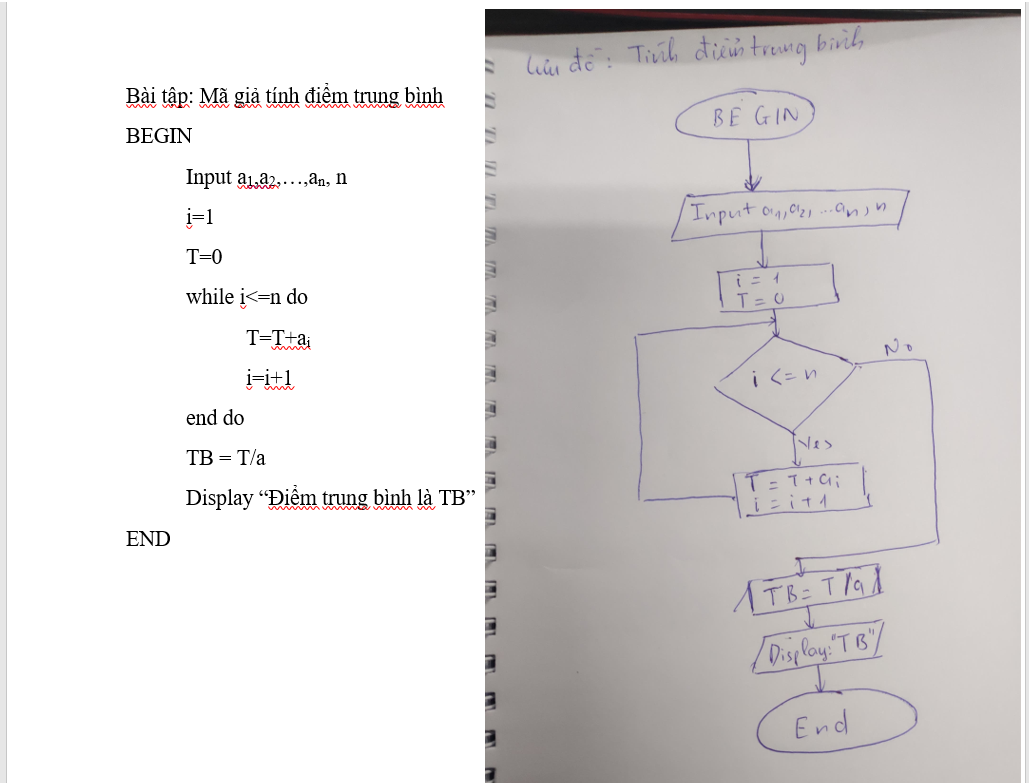 Bài tập: Mã giả tính điểm trung bình
BEGIN
Input a₁,a₂,…,aₙ, n
i=1
T=0
while i<=n do
T=T+aᵢ
i=i+1
end do
TB = T/a
Display “Điểm trung bình là TB”
END
Lưu đồ: Tính điểm trung bình
BEGIN
Input a₁, a₂, ...aₙ, n
i = 1
T = 0
i <= n
No
Yes
T = T + aᵢ
i = i + 1
TB = T/a
Display: "TB"
End